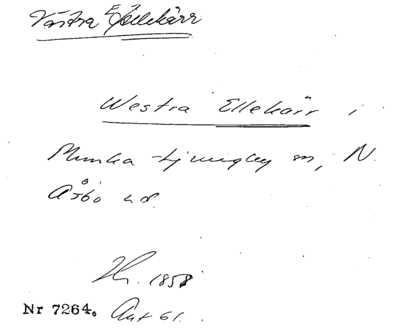 Västra Ellekärr
Westra Ellekärr i
Munka-Ljungby sn, N.
Åsbo hd.
1858
Nr 7264. Akt 61.